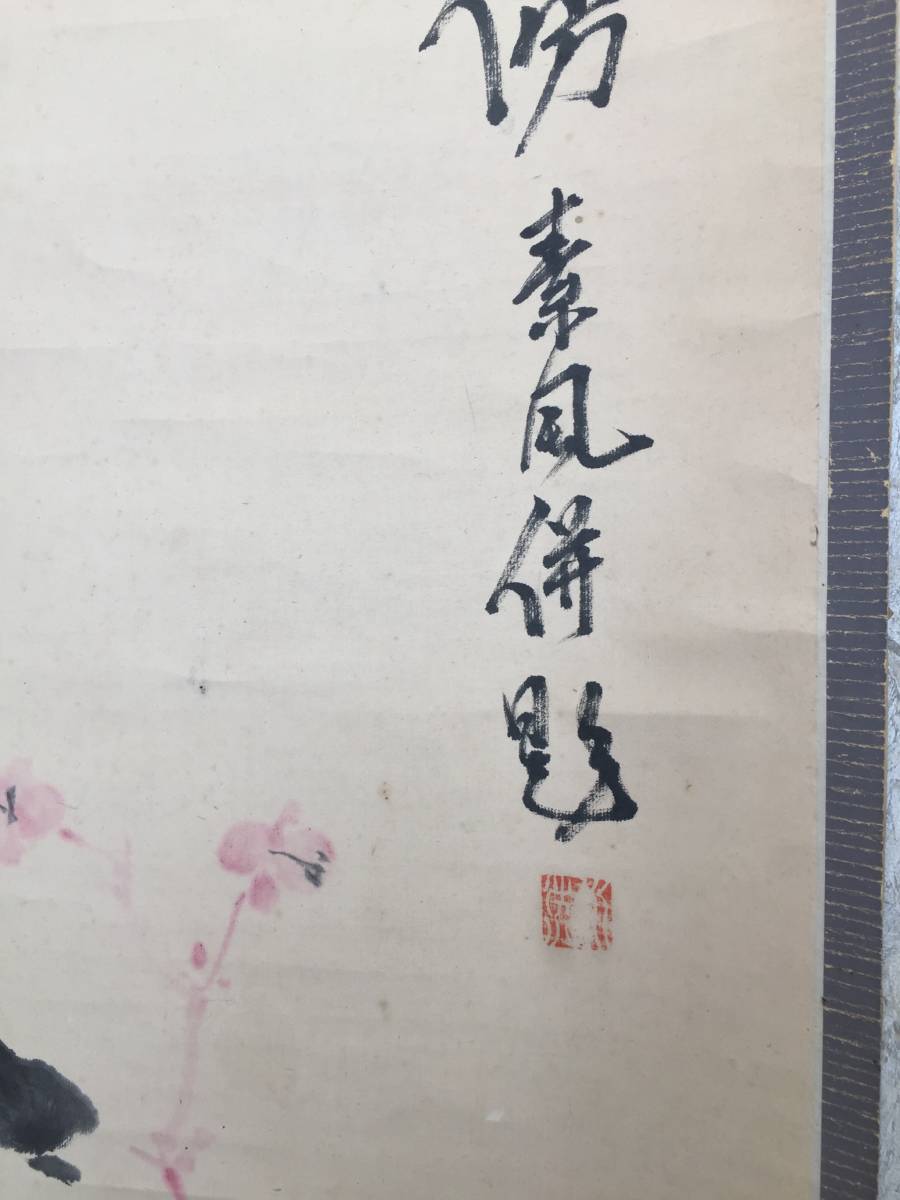 素風併題